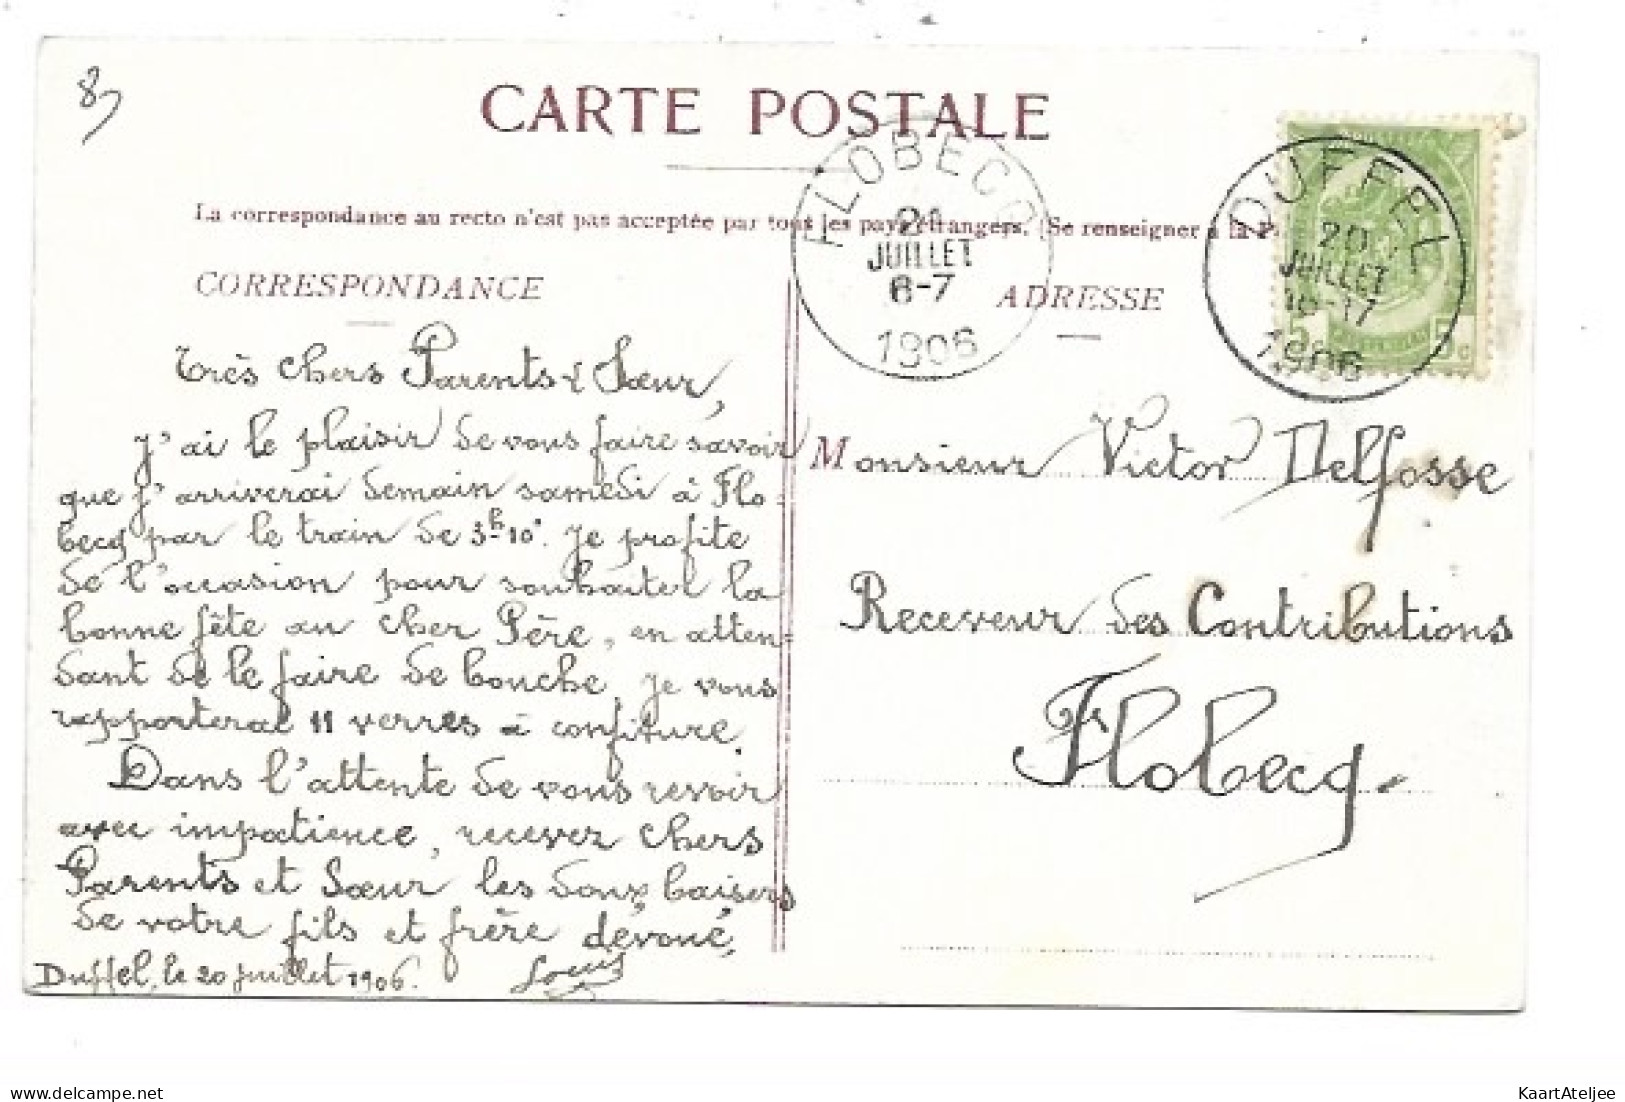 83
CARTE POSTALE
La correspondance au recto n'est pas acceptée par tous les pays étrangers. (Se renseigner à la
FLOBECQ
21
JUILLET
6-7
1906
DUFFEL
20
JUILLET
1906
5 5c
CORRESPONDANCE
ADRESSE
Très chers Parents & Sœur,
J'ai le plaisir de vous faire savoir
que j'arriverai demain samedi à Flo-
becq par le train de 3h-10'. Je profite
de l'occasion pour souhaiter la
bonne fête au cher Père, en atten-
dant de le faire de bouche. Je vous
rapporterai 11 verres à confiture.
Dans l'attente de vous revoir
avec impatience, recevez chers
Parents et Sœur les doux baisers
de votre fils et frère dévoué,
Duffel, le 20 juillet 1906. Louis
Monsieur Victor Delfosse
Receveur des Contributions
Flobecq.
delcampe.net
KaartAteljee